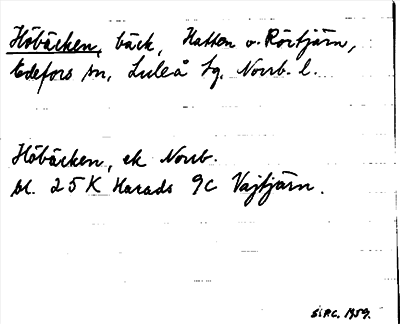 Höbäcken, bäck, Hatten o. Rörtjärn,
Edefors sn, Luleå tg. Norrb. l.
Höbäcken, ek Norrb.
bl. 25K Harads 9c Vajtjärn.
1959.